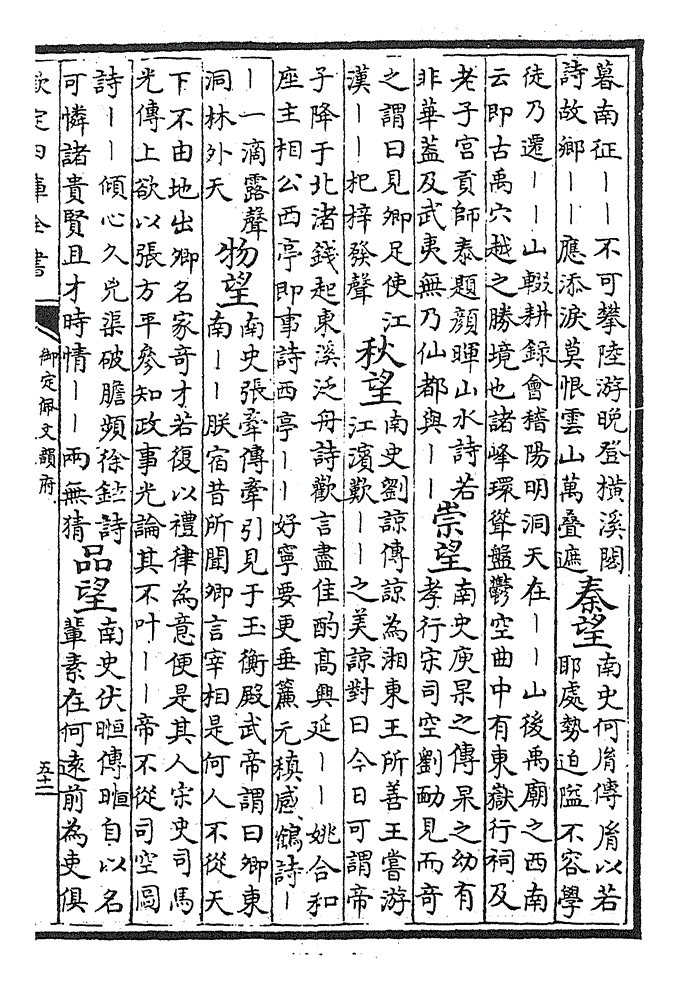 暮南征丨丨不可攀陸游晚登橫溪閣
詩故鄉丨丨應添淚莫恨雲山萬叠遮
秦望
南史何胤傳胤以若
耶處勢迫隘不容學
徒乃遷丨丨山輟耕錄會稽陽明洞天在丨丨山後禹廟之西南
云即古禹穴越之勝境也諸峰環聳盤鬱空曲中有東嶽行祠及
老子宮貢師泰題顏暉山水詩若
非華蓋及武夷無乃仙都與丨丨
崇望
南史庾杲之傳杲之幼有
孝行宋司空劉勔見而奇
之謂曰見卿足使江
漢丨丨杞梓發聲
秋望
南史劉諒傳諒為湘東王所善王嘗游
江濱歎丨丨之美諒對曰今日可謂帝
子降于北渚錢起東溪泛舟詩歡言盡佳酌高興延丨丨姚合和
座主相公西亭即事詩西亭丨丨好寧要更垂簾元稹感鶴詩丨
丨一滴露聲
洞林外天
物望
南史張率傳率引見于玉衡殿武帝謂曰卿東
南丨丨朕宿昔所聞卿言宰相是何人不從天
下不由地出卿名家奇才若復以禮律為意便是其人宋史司馬
光傳上欲以張方平參知政事光論其不叶丨丨帝不從司空圖
詩丨丨傾心久兇渠破膽頻徐鉉詩
可憐諸貴賢且才時情丨丨兩無猜
品望
南史伏暅傳暅自以名
輩素在何遠前為吏俱
欽定四庫全書
御定佩文韻府
五十二